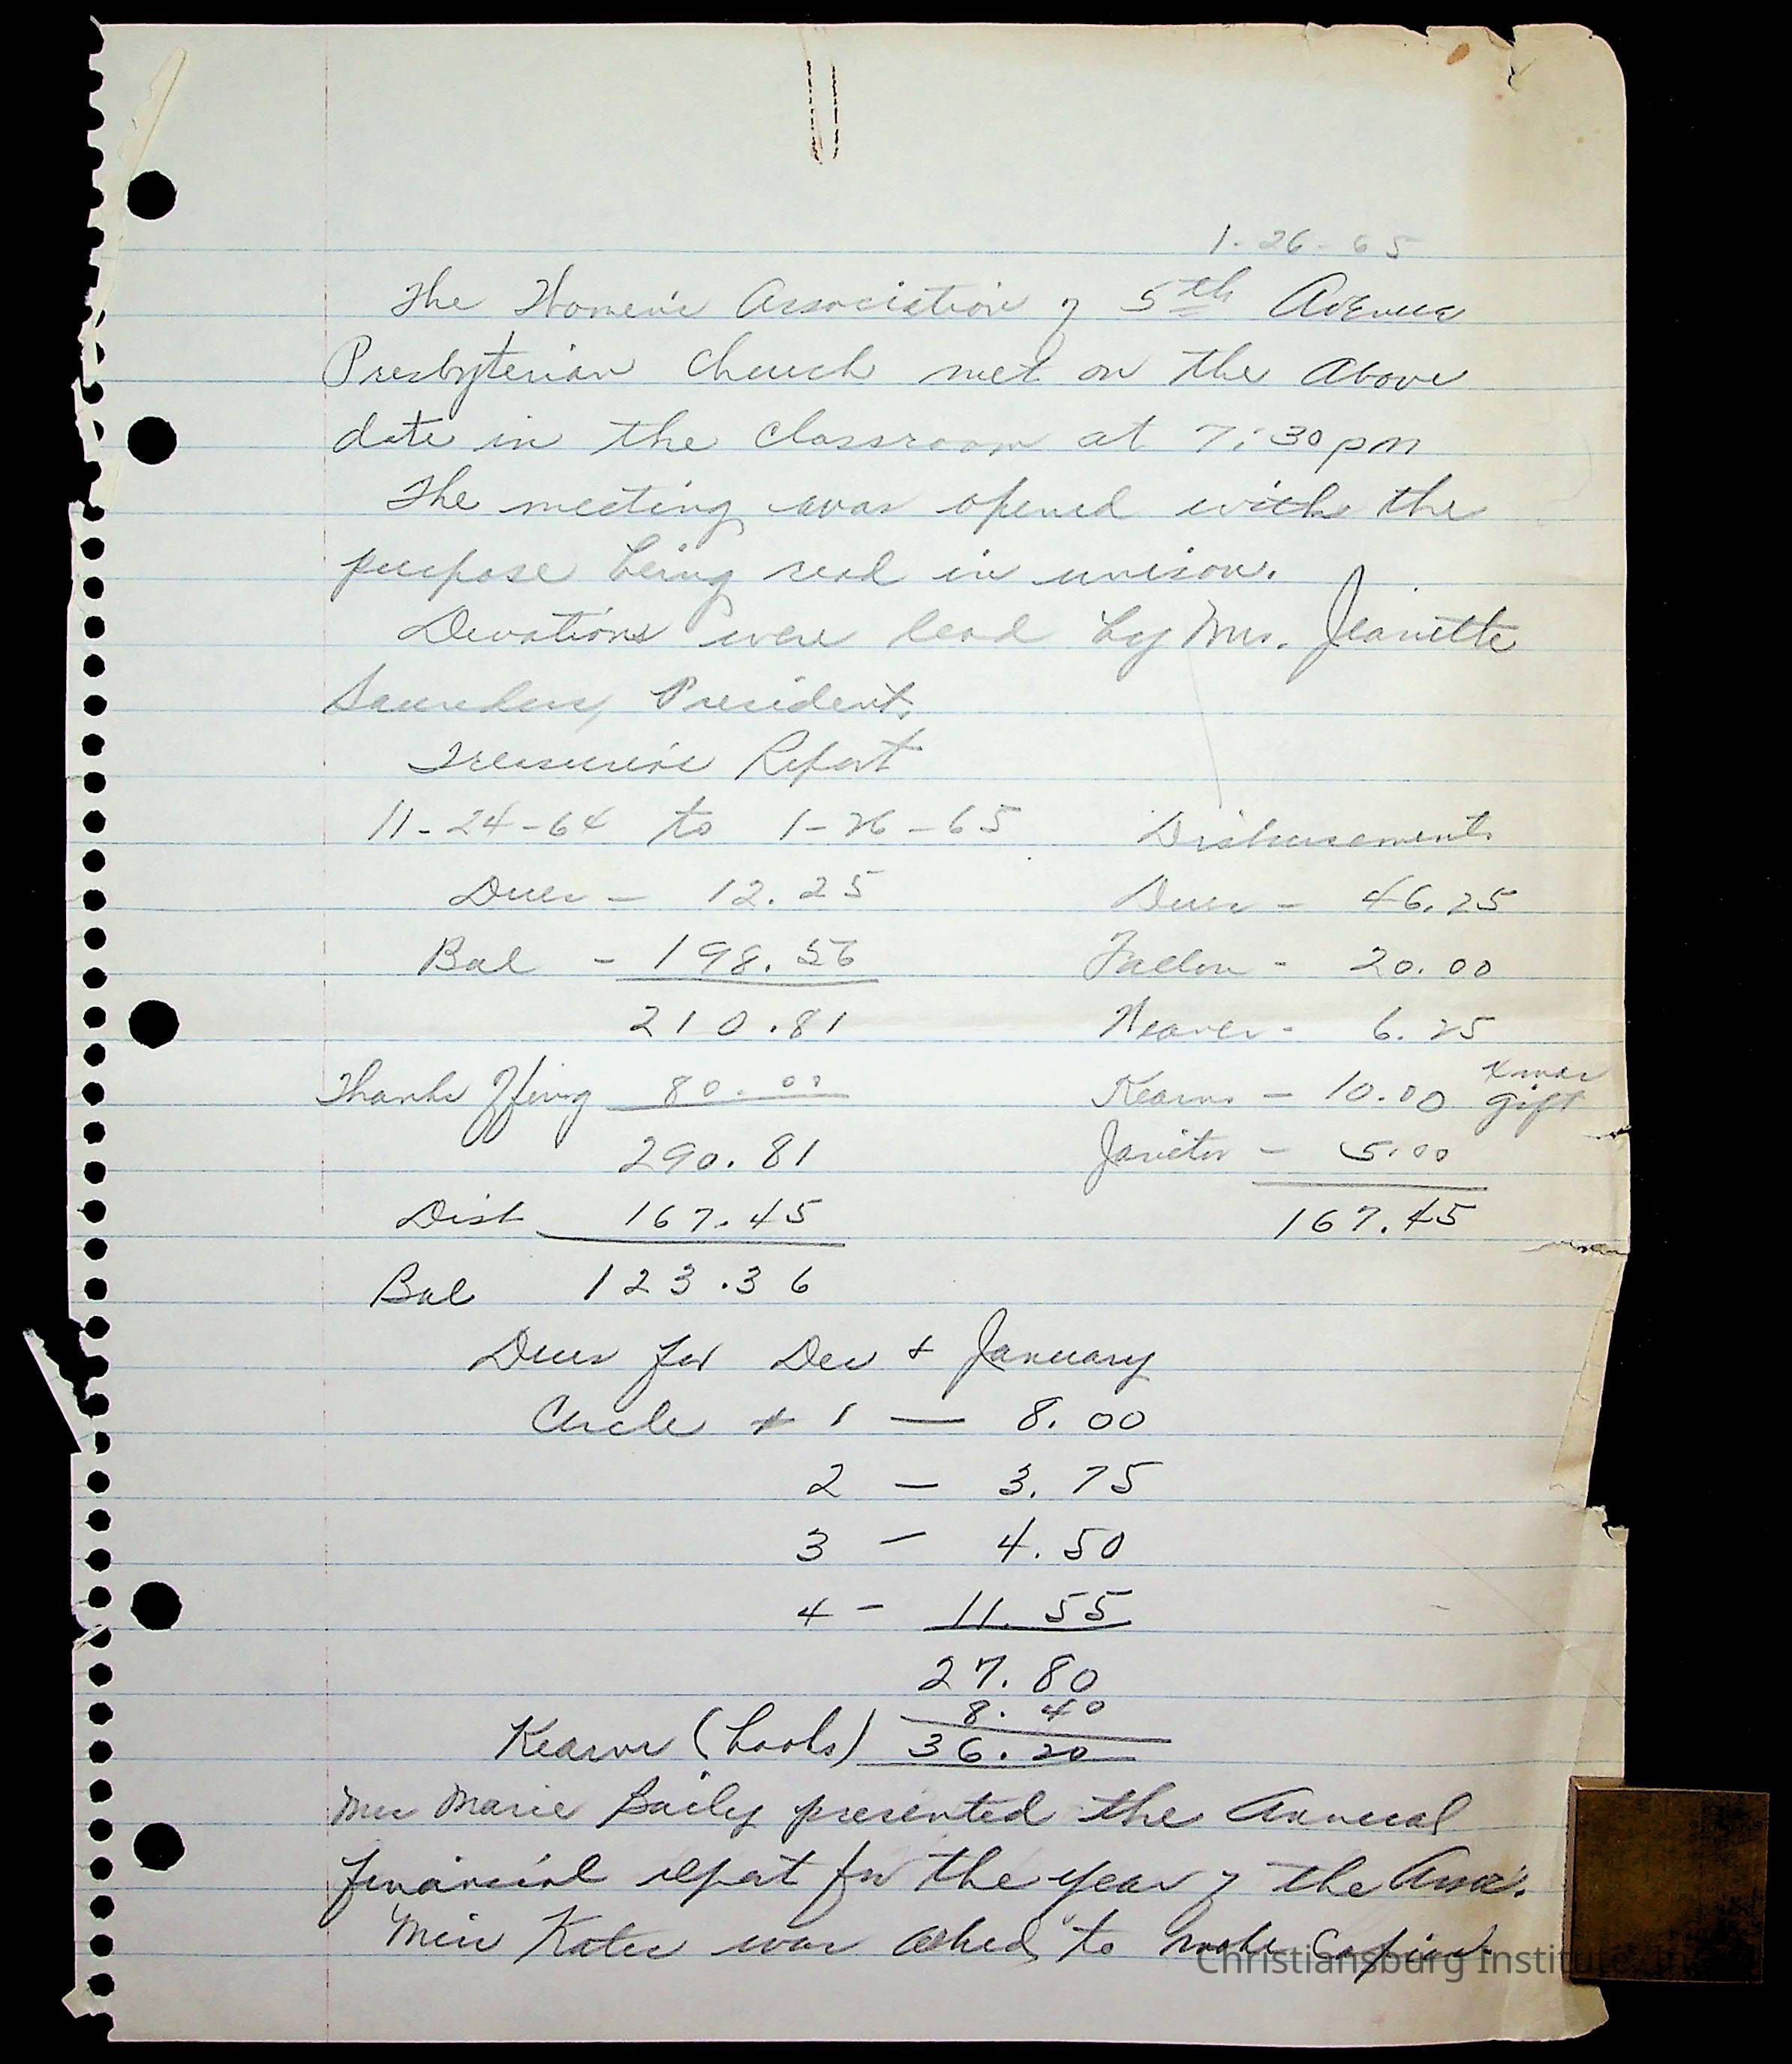 1-26-65
The Women's Association of 5th Avenue
Presbyterian Church met on the above
date in the classroom at 7:30 pm
The meeting was opened with the
purpose being read in unison.
Devotions were lead by Mrs. Jeanette
Saunders, President.
Treasurer's Report
11-24-64 to 1-26-65 Disbursements
Dues - 12.25 Dues - 46.25
Bal - 198.56 - 20.00
210.81 Weaver - 6.25
Thanks Offering 80.00 Kearns - 10.00 Xmas gift
290.81 Janitor - 5.00
Disb 167.45 167.45
Bal 123.36
Dues for Dec + January
Circle # 1 — 8.00
2 — 3.75
3 - 4.50
4 - 11.55
27.80
8.40
Kearns (books) 36.20
Mrs Marie Baily presented the Annual
financial report for the year of the Asso.
Miss Kates was asked to make copies.
Christiansburg Institute, Inc.